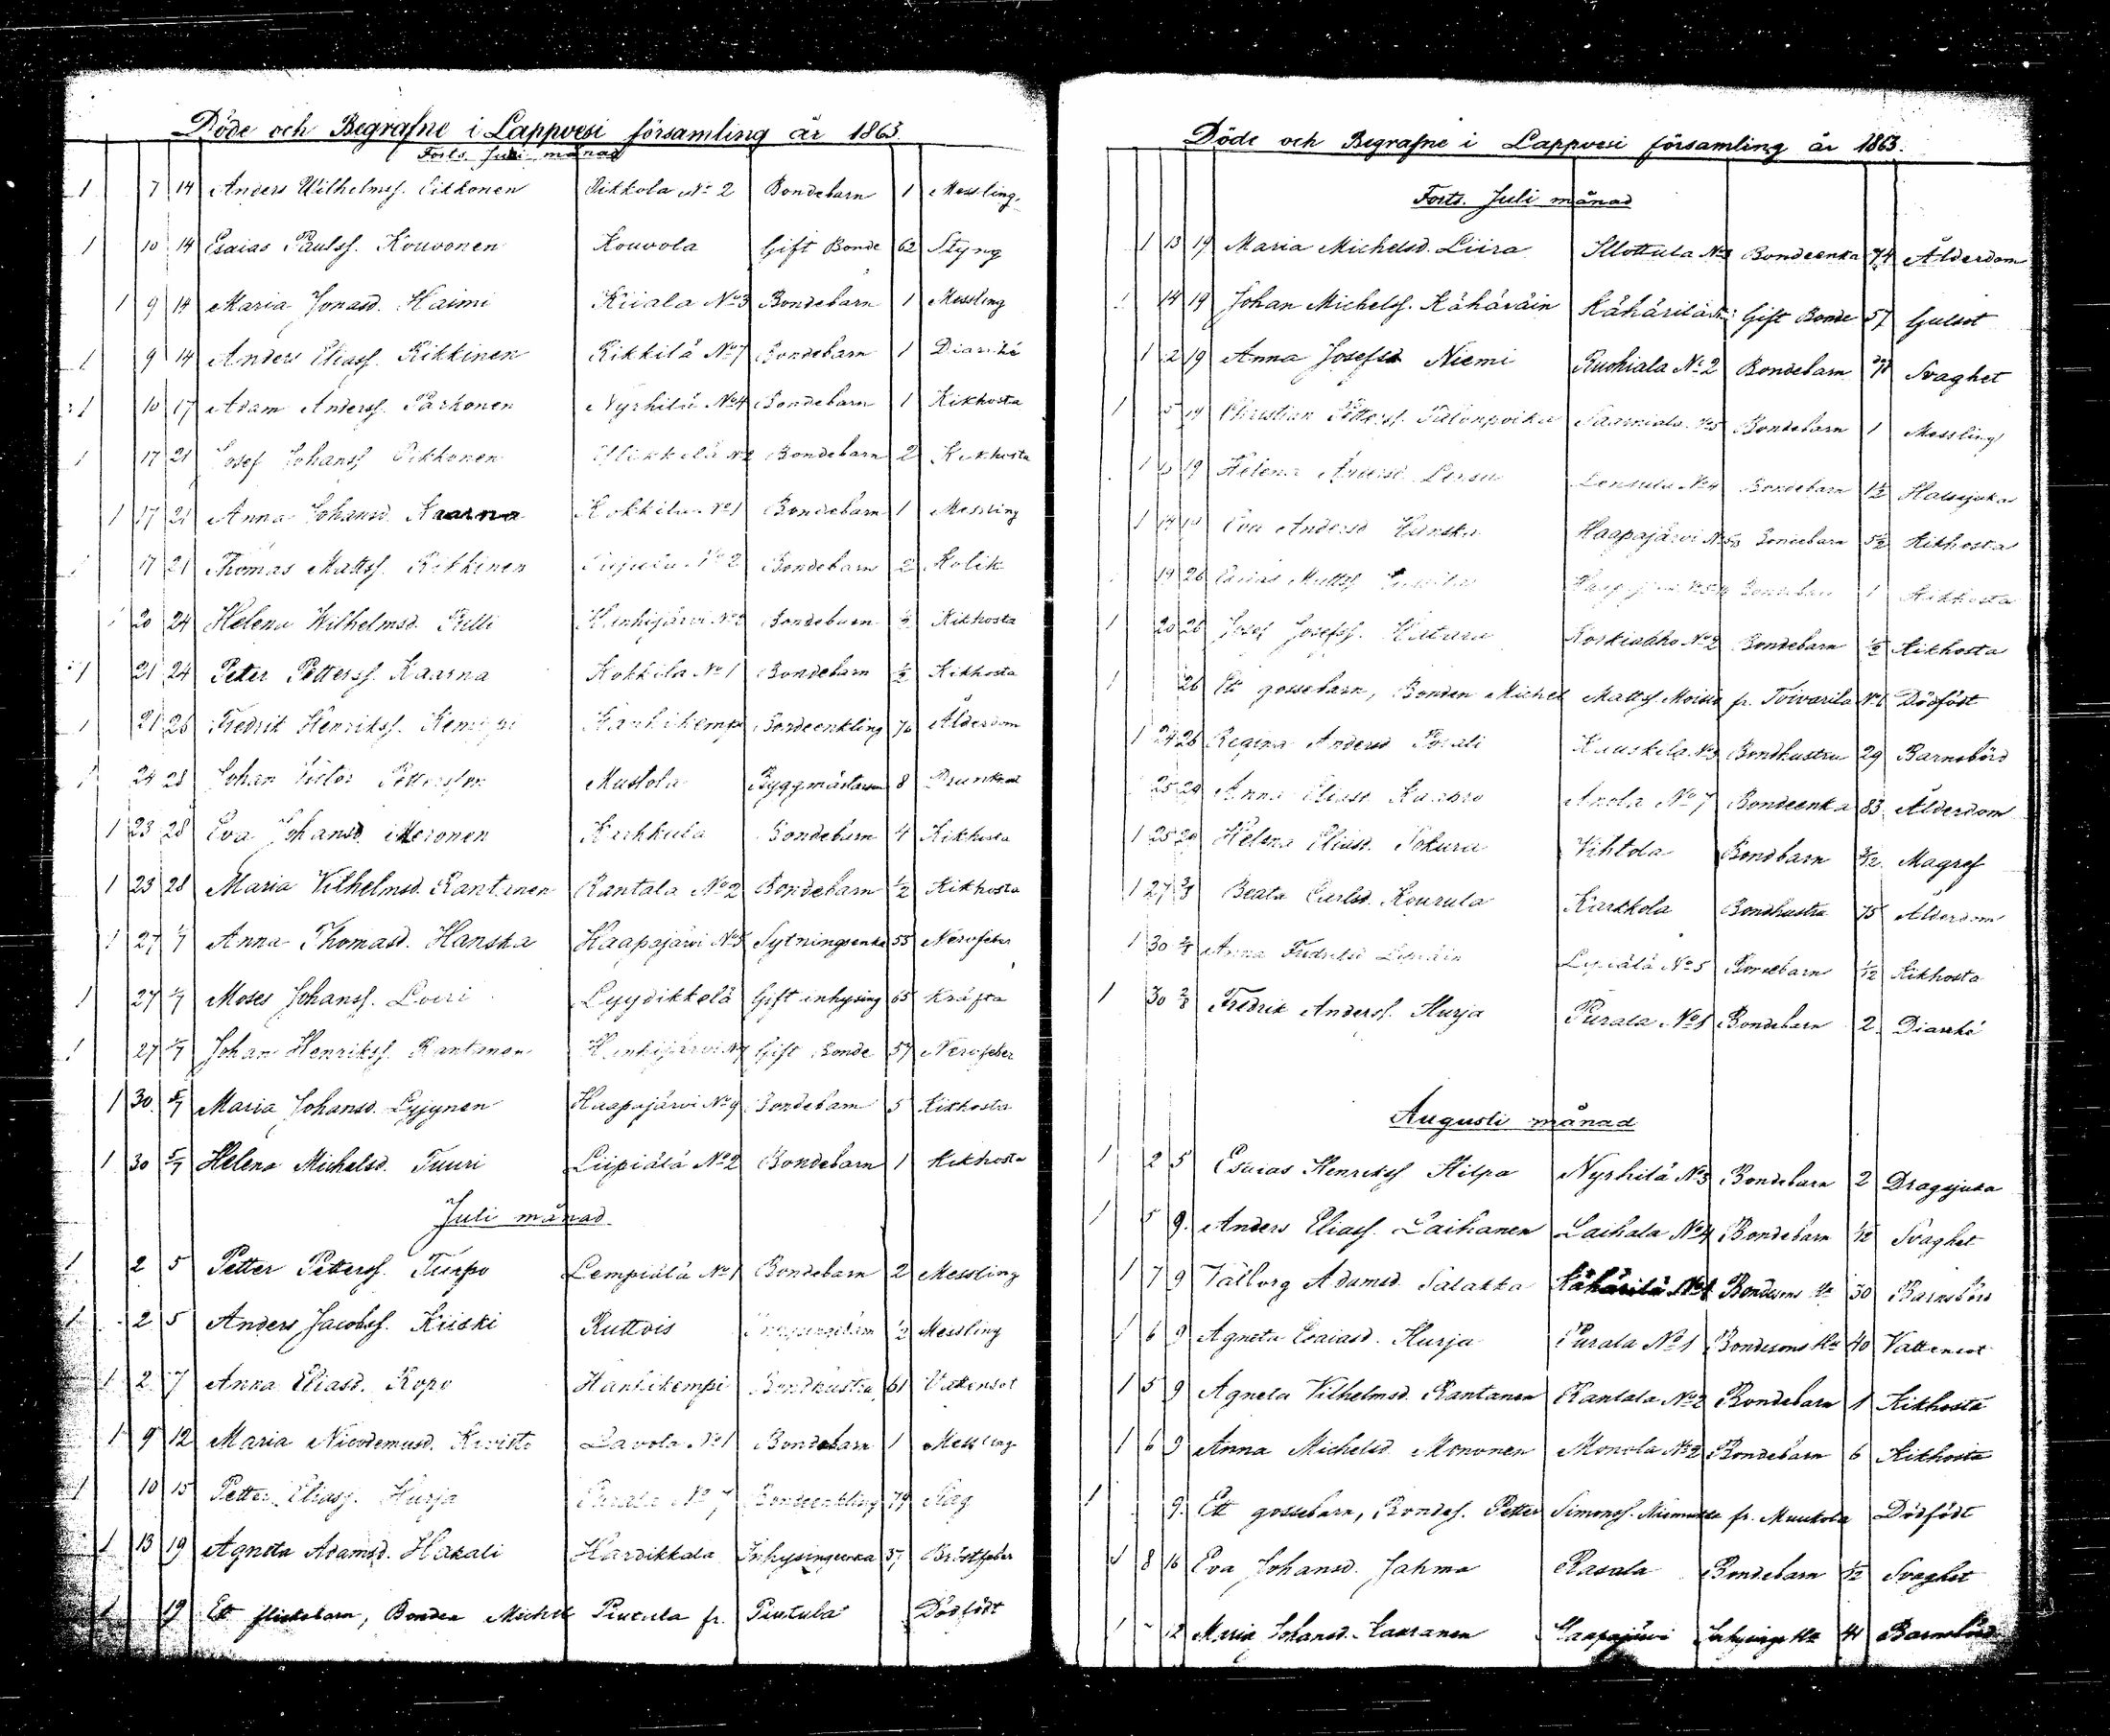 Döde och Begrafne i Lappvesi församling år 1863.
Forts. Juni månad
1 7 14 Anders Wilhelmss. Pikkola No 2 Bondebarn 1 Messling.
1 10 14 Esaias Paulss. Kouvonen Kouvola Gift Bonde 62 Styng
1 9 14 Maria Jonasd. Haimi Kiiala No 3 Bondebarn 1 Messling
1 9 14 Anders Eliass. Rikkinen Rikkilä No 7 Bondebarn 1 Diarrhé
1 10 17 Adam Anderss. Parkonen Nyrhilä No 4 Bondebarn 1 Kikhosta
1 17 21 Josef Johanss. Bondebarn 2 Kikhosta
1 17 21 Anna Johansd. Kaarna Kokkila No 1 Bondebarn 1 Messling
17 21 Thomas Mattss. Rikkinen No 2 Bondebarn 2 Kolik
1 20 24 Helena Wilhelmsd. Pelli Hinkijärvi Bondebarn Kikhosta
1 21 24 Peter Petterss. Kaarna Kokkila No 1 Bondebarn ½ Kikhosta
1 21 26 Fredrik Henrikss. Kemppi Hanhikemppi Bondeenkling Ålderdom
1 24 28 Johan Victor Mustola Byggmästareson 8 Drunknat
1 23 28 Eva Johansd. Meronen Karhkula Bondebarn 4 Kikhosta
1 23 28 Maria Vilhelmsd. Rantanen Rantala No 2 Bondebarn ½ Kikhosta
1 27 1/7 Anna Thomasd. Hanska Haapajärvi No 5 Sytningsenka 55 Nervfeber
1 27 1/7 Moses Johanss. Loiri Lyydikkälä Gift inhysing 65 Kräfta
1 27 1/7 Johan Henrikss. Rantanen Hinkijärvi Gift Bonde 57 Nervfeber
1 30 5/7 Maria Johansd. Lyjynen Haapajärvi No 9 Bondebarn 5 Kikhosta
1 30 5/7 Helena Michelsd. Tuuri Liipiälä No 2 Bondebarn 1 Kikhosta
Juli månad
1 2 5 Petter Petterss. Tiinpo Lempiälä No 1 Bondebarn 2 Messling
1 2 5 Anders Jacobss. Kiiski Ruttois ½ Messling
1 2 7 Anna Eliasd. Ropo Hanhikempi Bondhustru 61 Vattensot
1 9 12 Maria Nicodemusd. Kiviste Lavola No 1 Bondebarn 1 Messling
1 10 15 Petter Eliass. Hurja Purala No 7 Bondeenkling 79
1 13 19 Agneta Adamsd. Hakali Hardikkala Inhysingeenka 57 Bröstfeber
1 19 Ett flickebarn, Bonden Michel Piutula fr. Piutula Dödfödt
Döde och Begrafne i Lappvesi församling år 1863.
Forts. Juli månad
1 13 19 Maria Michelsd. Liira Ilottula No 3 Bondeenka 74 Ålderdom
1 14 19 Johan Michelss. Kähäväin Kähärilä Gift Bonde 57 Gulsot
1 2 19 Anna Josefsd. Niemi Ruohiala No 2 Bondebarn Svaghet
1 5 19 Christian Petterss. Talonpoika Saarniala No 5 Bondebarn 1 Messling
1 19 Helena Andersd. Lensu Lensula No 4 Bondebarn 1½ Halssjuka
1 14 19 Eva Andersd. Hanska Haapajärvi Bondebarn Kikhosta
19 26 Esaias Mattss. Bondebarn 1 Kikhosta
1 20 26 Josef Josefss. Hatura Koskiahho No 2 Bondebarn Kikhosta
1 26 Ett gossebarn, Bonden Michel Mattss. Moisio fr. Toivarila No 6 Dödfödt
1 24 26 Regina Andersd. Porali Kauskila No 3 Bondhustru 29 Barnsbörd
25 29 Anna Eliasd. Kaapro Anola No 7 Bondeenka 83 Ålderdom
1 25 29 Helena Eliasd. Tokura Vihtola Bondbarn Magref
1 27 2/8 Beata Carlsd. Kourula Karkkola Bondhustru 75 Ålderdom
1 30 2/8 Anna Fredriksd. Lypiäläin Lypiälä No 5 Bondebarn Kikhosta
1 30 2/8 Fredrik Anderss. Hurja Purala No 1 Bondebarn 2 Diarrhé
Augusti månad
1 2 5 Esaias Henrikss. Hilpa Nyrhilä No 3 Bondebarn 2 Dragsjuka
1 5 9 Anders Eliass. Laihanen Laihala No 4 Bondebarn Svaghet
1 7 9 Valborg Adamsd. Salakka Kähärilä No 4 Bondesons Hu 30 Barnsbörd
1 6 9 Agneta Esaiasd. Hurja Purala No 1 Bondesons Hu 40 Vattensot
1 5 9 Agneta Vilhelmsd. Rantanen Rantala No 2 Bondebarn 1 Kikhosta
1 6 9 Anna Michelsd. Mononen Monola No 2 Bondebarn 6 Kikhosta
1 9 Ett gossebarn, Bondes. Petter Simonss. fr. Muukola Dödfödt
1 8 16 Eva Johansd. Jahma Rasala Bondebarn Svaghet
1 12 Maria Johansd. Lauranen Haapajärvi Inhysings Hu 41 Barnsbörd